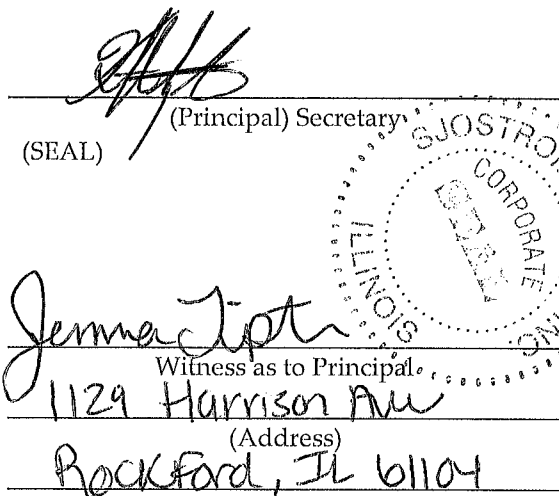 (Principal) Secretary
(SEAL)
SJOSTRO
CORPORATE
SEAL
INC.
ILLINOIS
Jemma Tipt
Witness as to Principal
1129 Harrison Ave
(Address)
Rockford, IL 61104